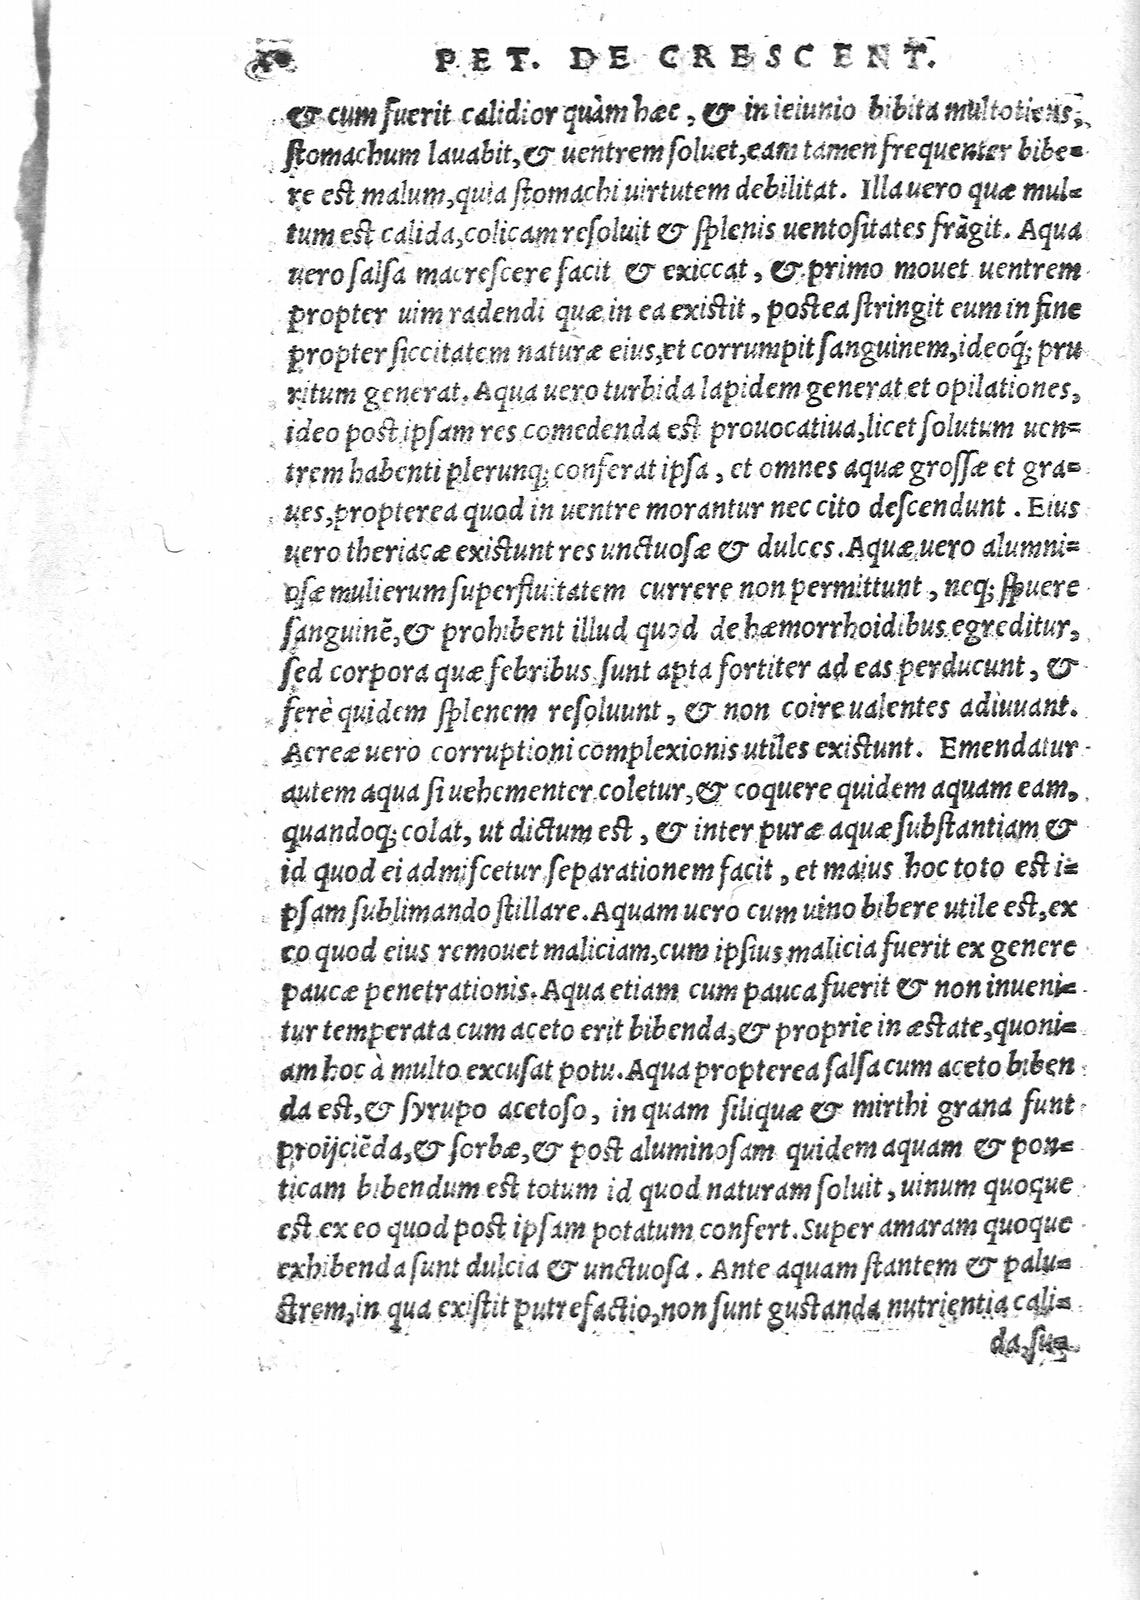 PET. DE CRESCENT.
& cum fuerit calidior quàm hæc, & in ieiunio bibita multotiens,
ſtomachum lauabit, & uentrem ſoluet, eam tamen frequenter bibe=
re eſt malum, quia ſtomachi uirtutem debilitat. Illa uero quæ mul=
tum eſt calida, colicam reſoluit & ſplenis uentoſitates frãgit. Aqua
uero ſalſa macreſcere facit & exiccat, & primo mouet uentrem
propter uim radendi quæ in ea exiſtit, poſtea ſtringit eum in fine
propter ſiccitatem naturæ eius, et corrumpit ſanguinem, ideoq́; pru
ritum generat. Aqua uero turbida lapidem generat et opilationes,
ideo poſt ipſam res comedenda eſt prouocatiua, licet ſolutum uen=
trem habenti plerunq; conferat ipſa, et omnes aquæ groſſæ et gra=
ues, propterea quod in uentre morantur nec cito deſcendunt. Eius
uero theriacæ exiſtunt res unctuoſæ & dulces. Aquæ uero alumni=
oſæ mulierum ſuperfluitatem currere non permittunt, neq; ſpuere
ſanguinẽ, & prohibent illud quod de hæmorrhoidibus egreditur,
ſed corpora quæ febribus ſunt apta fortiter ad eas perducunt, &
ferè quidem ſplenem reſoluunt, & non coire ualentes adiuuant.
Aereæ uero corruptioni complexionis utiles exiſtunt. Emendatur
autem aqua ſi uehementer coletur, & coquere quidem aquam eam,
quandoq; colat, ut dictum eſt, & inter puræ aquæ ſubſtantiam &
id quod ei admiſcetur ſeparationem facit, et maius hoc toto eſt i=
pſam ſublimando ſtillare. Aquam uero cum uino bibere utile eſt, ex
eo quod eius remouet maliciam, cum ipſius malicia fuerit ex genere
paucæ penetrationis. Aqua etiam cum pauca fuerit & non inueni=
tur temperata cum aceto erit bibenda, & proprie in æſtate, quoni=
am hoc à multo excuſat potu. Aqua propterea ſalſa cum aceto biben
da eſt, & ſyrupo acetoſo, in quam ſiliquæ & mirthi grana ſunt
proijciẽda, & ſorbæ, & poſt aluminoſam quidem aquam & pon=
ticam bibendum eſt totum id quod naturam ſoluit, uinum quoque
eſt ex eo quod poſt ipſam potatum confert. Super amaram quoque
exhibenda ſunt dulcia & unctuoſa. Ante aquam ſtantem & palu=
ſtrem, in qua exiſtit putrefactio, non ſunt guſtanda nutrientia cali=
da, ſu=